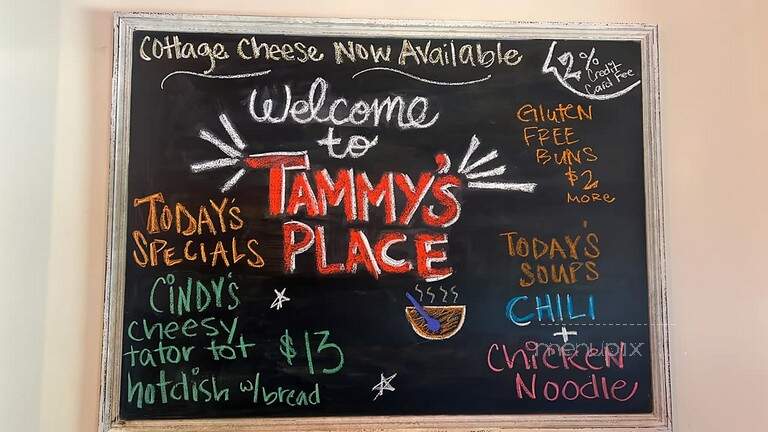 Cottage Cheese Now Available
2% Credit
Card Fee
Welcome
to
TAMMY'S
PLACE
GLUTEN
FREE
BUNS
$2
MORE
TODAY'S
SPECIALS
CINDY'S
cheesy
tator tot $13
hotdish w/bread
TODAY'S
SOUPS
CHILI
+
CHICKEN
NOODLE
menupix